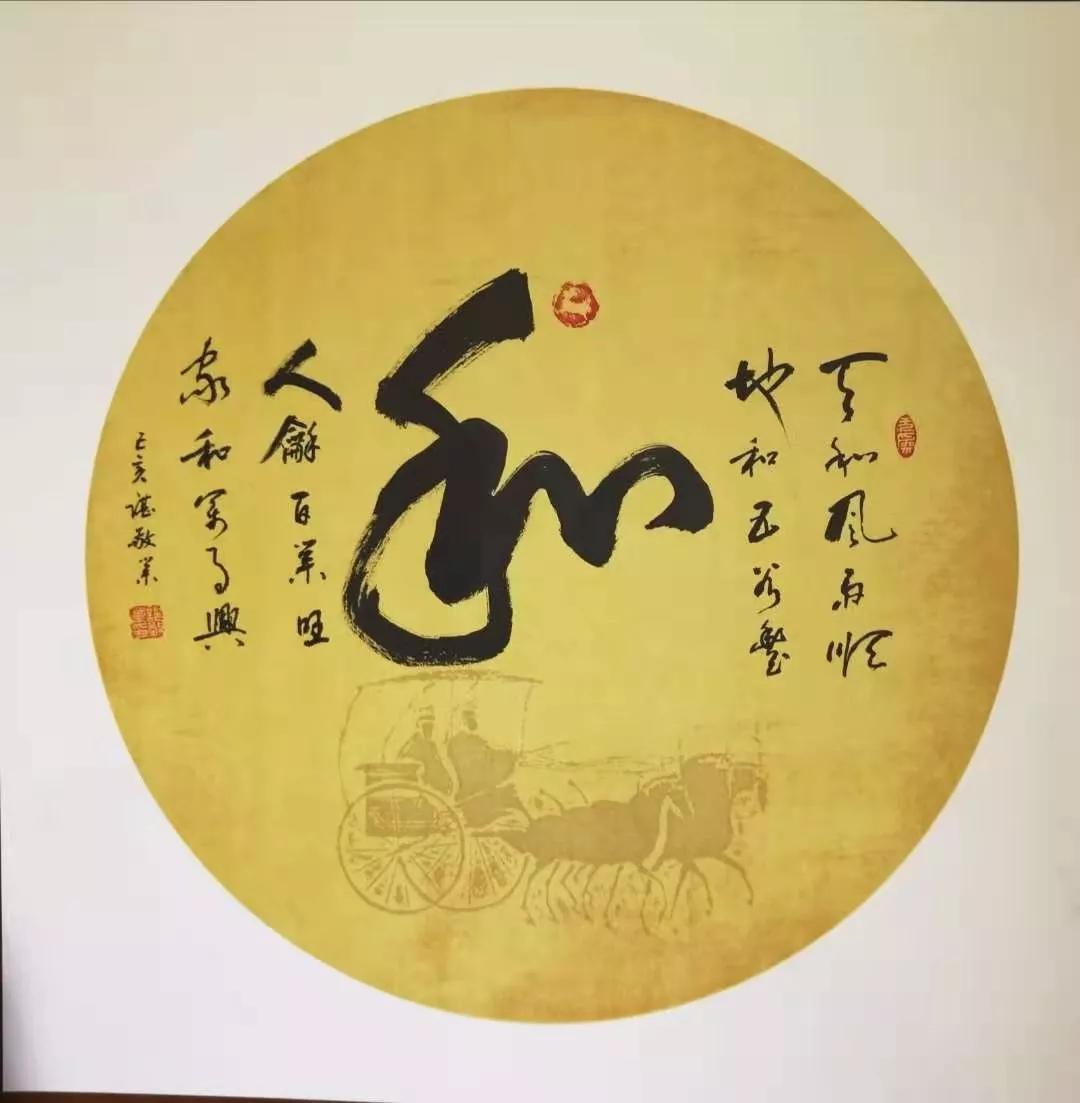 天和风雨顺
地和五谷丰
和
人龢百业旺
家和万事興
己亥 谌敬业